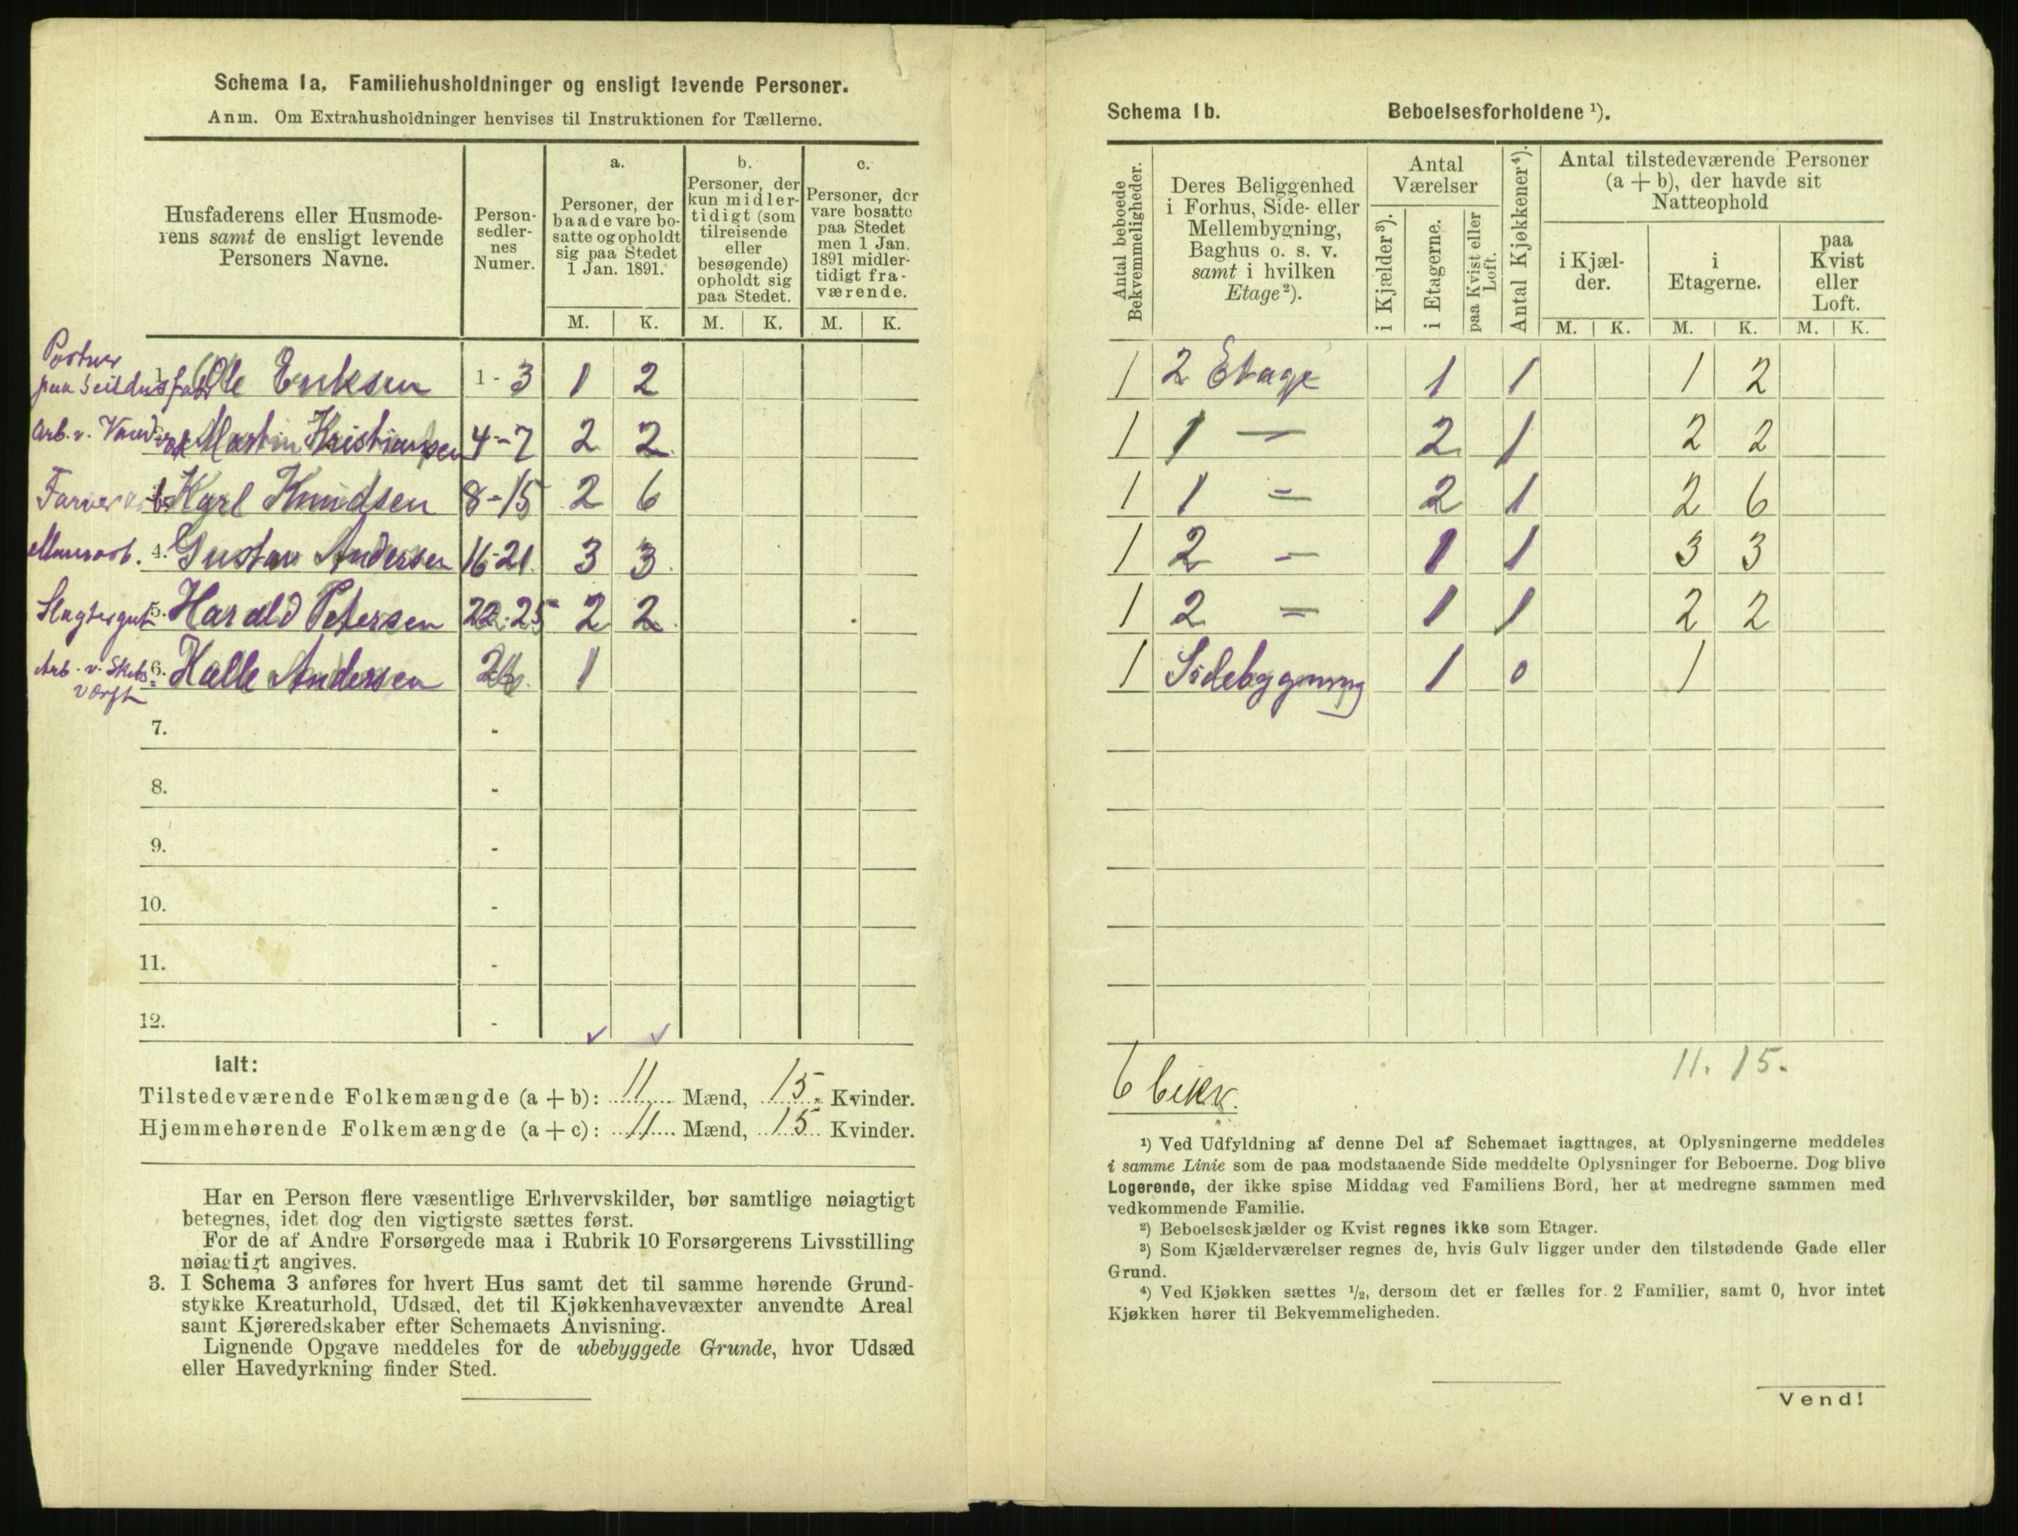 Schema 1a, Familiehusholdninger og ensligt levende Personer.
Anm. Om Extrahusholdninger henvises til Instruktionen for Tællerne.
Husfaderens eller Husmoderens samt de ensligt levende Personers Navne.
Person-sedler-nes Numer.
a.
Personer, der baade vare bosatte og opholdt sig paa Stedet 1 Jan. 1891.
b.
Personer, der kun midlertidigt (som tilreisende eller besøgende) opholdt sig paa Stedet.
c.
Personer, der vare bosatte paa Stedet men 1 Jan. 1891 midlertidigt fraværende.
M. K. M. K. M. K.
paa Seildugsfabr
Ole Eriksen 1 - 3 1 2
Arb. v. Martin Kristiansen 4-7 2 2
Karl Knudsen 8-15 2 6
Murarb. 4. Gustav Andersen 16-21. 3 3
Slagtergut 5. Harald Petersen 22-25 2 2
Arb. v. Skibs- 6. Halle Andersen 26. 1
værft
7. -
8. -
9. -
10. -
11. -
12. -
Ialt:
Tilstedeværende Folkemængde (a + b): 11 Mænd, 15 Kvinder.
Hjemmehørende Folkemængde (a + c): 11 Mænd, 15 Kvinder.
Har en Person flere væsentlige Erhvervskilder, bør samtlige nøiagtigt
betegnes, idet dog den vigtigste sættes først.
For de af Andre Forsørgede maa i Rubrik 10 Forsørgerens Livsstilling
nøiagtigt angives.
3. I Schema 3 anføres for hvert Hus samt det til samme hørende Grund-
stykke Kreaturhold, Udsæd, det til Kjøkkenhavevæxter anvendte Areal
samt Kjøreredskaber efter Schemaets Anvisning.
Lignende Opgave meddeles for de ubebyggede Grunde, hvor Udsæd
eller Havedyrkning finder Sted.
Schema 1b. Beboelsesforholdene ¹).
Antal beboede Bekvemmeligheder.
Deres Beliggenhed i Forhus, Side- eller Mellembygning, Baghus o. s. v. samt i hvilken Etage²).
Antal Værelser
i Kjælder³).
i Etagerne.
paa Kvist eller Loft.
Antal Kjøkkener⁴).
Antal tilstedeværende Personer (a + b), der havde sit Natteophold
i Kjælder.
i Etagerne.
paa Kvist eller Loft.
M. K. M. K. M. K.
1 2 Etage 1 1 1 2
1 1 — 2 1 2 2
1 1 = 2 1 2 6
1 2 - 1 1 3 3
1 2 = 1 1 2 2
1 Sidebygning 1 0 1
11. 15.
6 bekv.
¹) Ved Udfyldning af denne Del af Schemaet iagttages, at Oplysningerne meddeles
i samme Linie som de paa modstaaende Side meddelte Oplysninger for Beboerne. Dog blive
Logerende, der ikke spise Middag ved Familiens Bord, her at medregne sammen med
vedkommende Familie.
²) Beboelseskjælder og Kvist regnes ikke som Etager.
³) Som Kjælderværelser regnes de, hvis Gulv ligger under den tilstødende Gade eller
Grund.
⁴) Ved Kjøkken sættes ½, dersom det er fælles for 2 Familier, samt 0, hvor intet
Kjøkken hører til Bekvemmeligheden.
Vend!